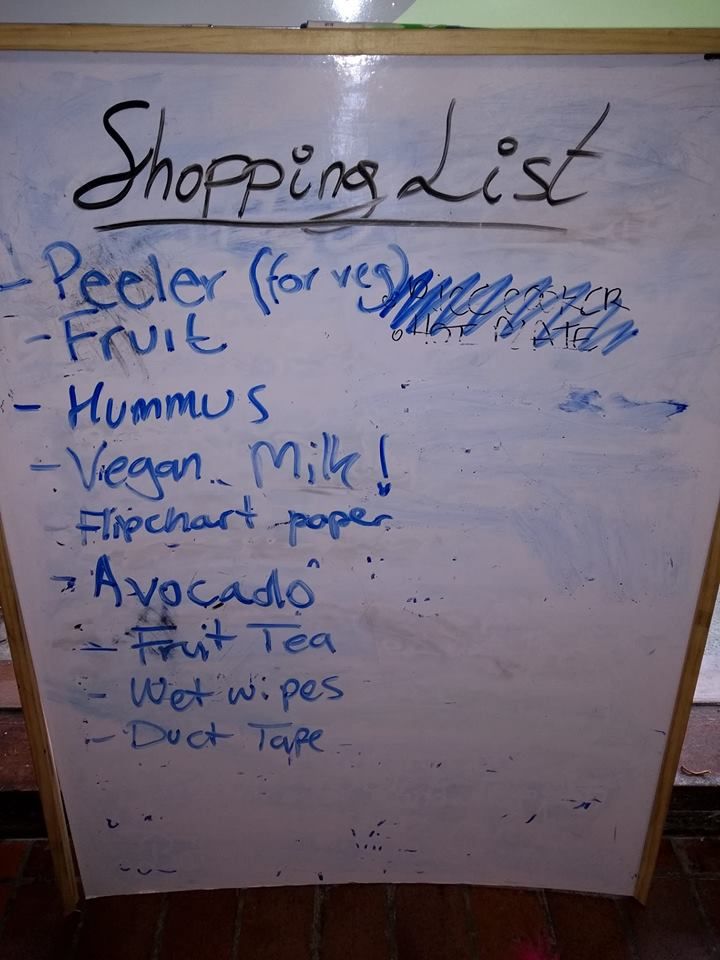 Shopping List
- Peeler (for veg)
RICE COOKER
- Fruit
HOT PLATE
- Hummus
- Vegan Milk!
Flipchart paper
- Avocado
- Fruit Tea
- Wet wipes
- Duct Tape